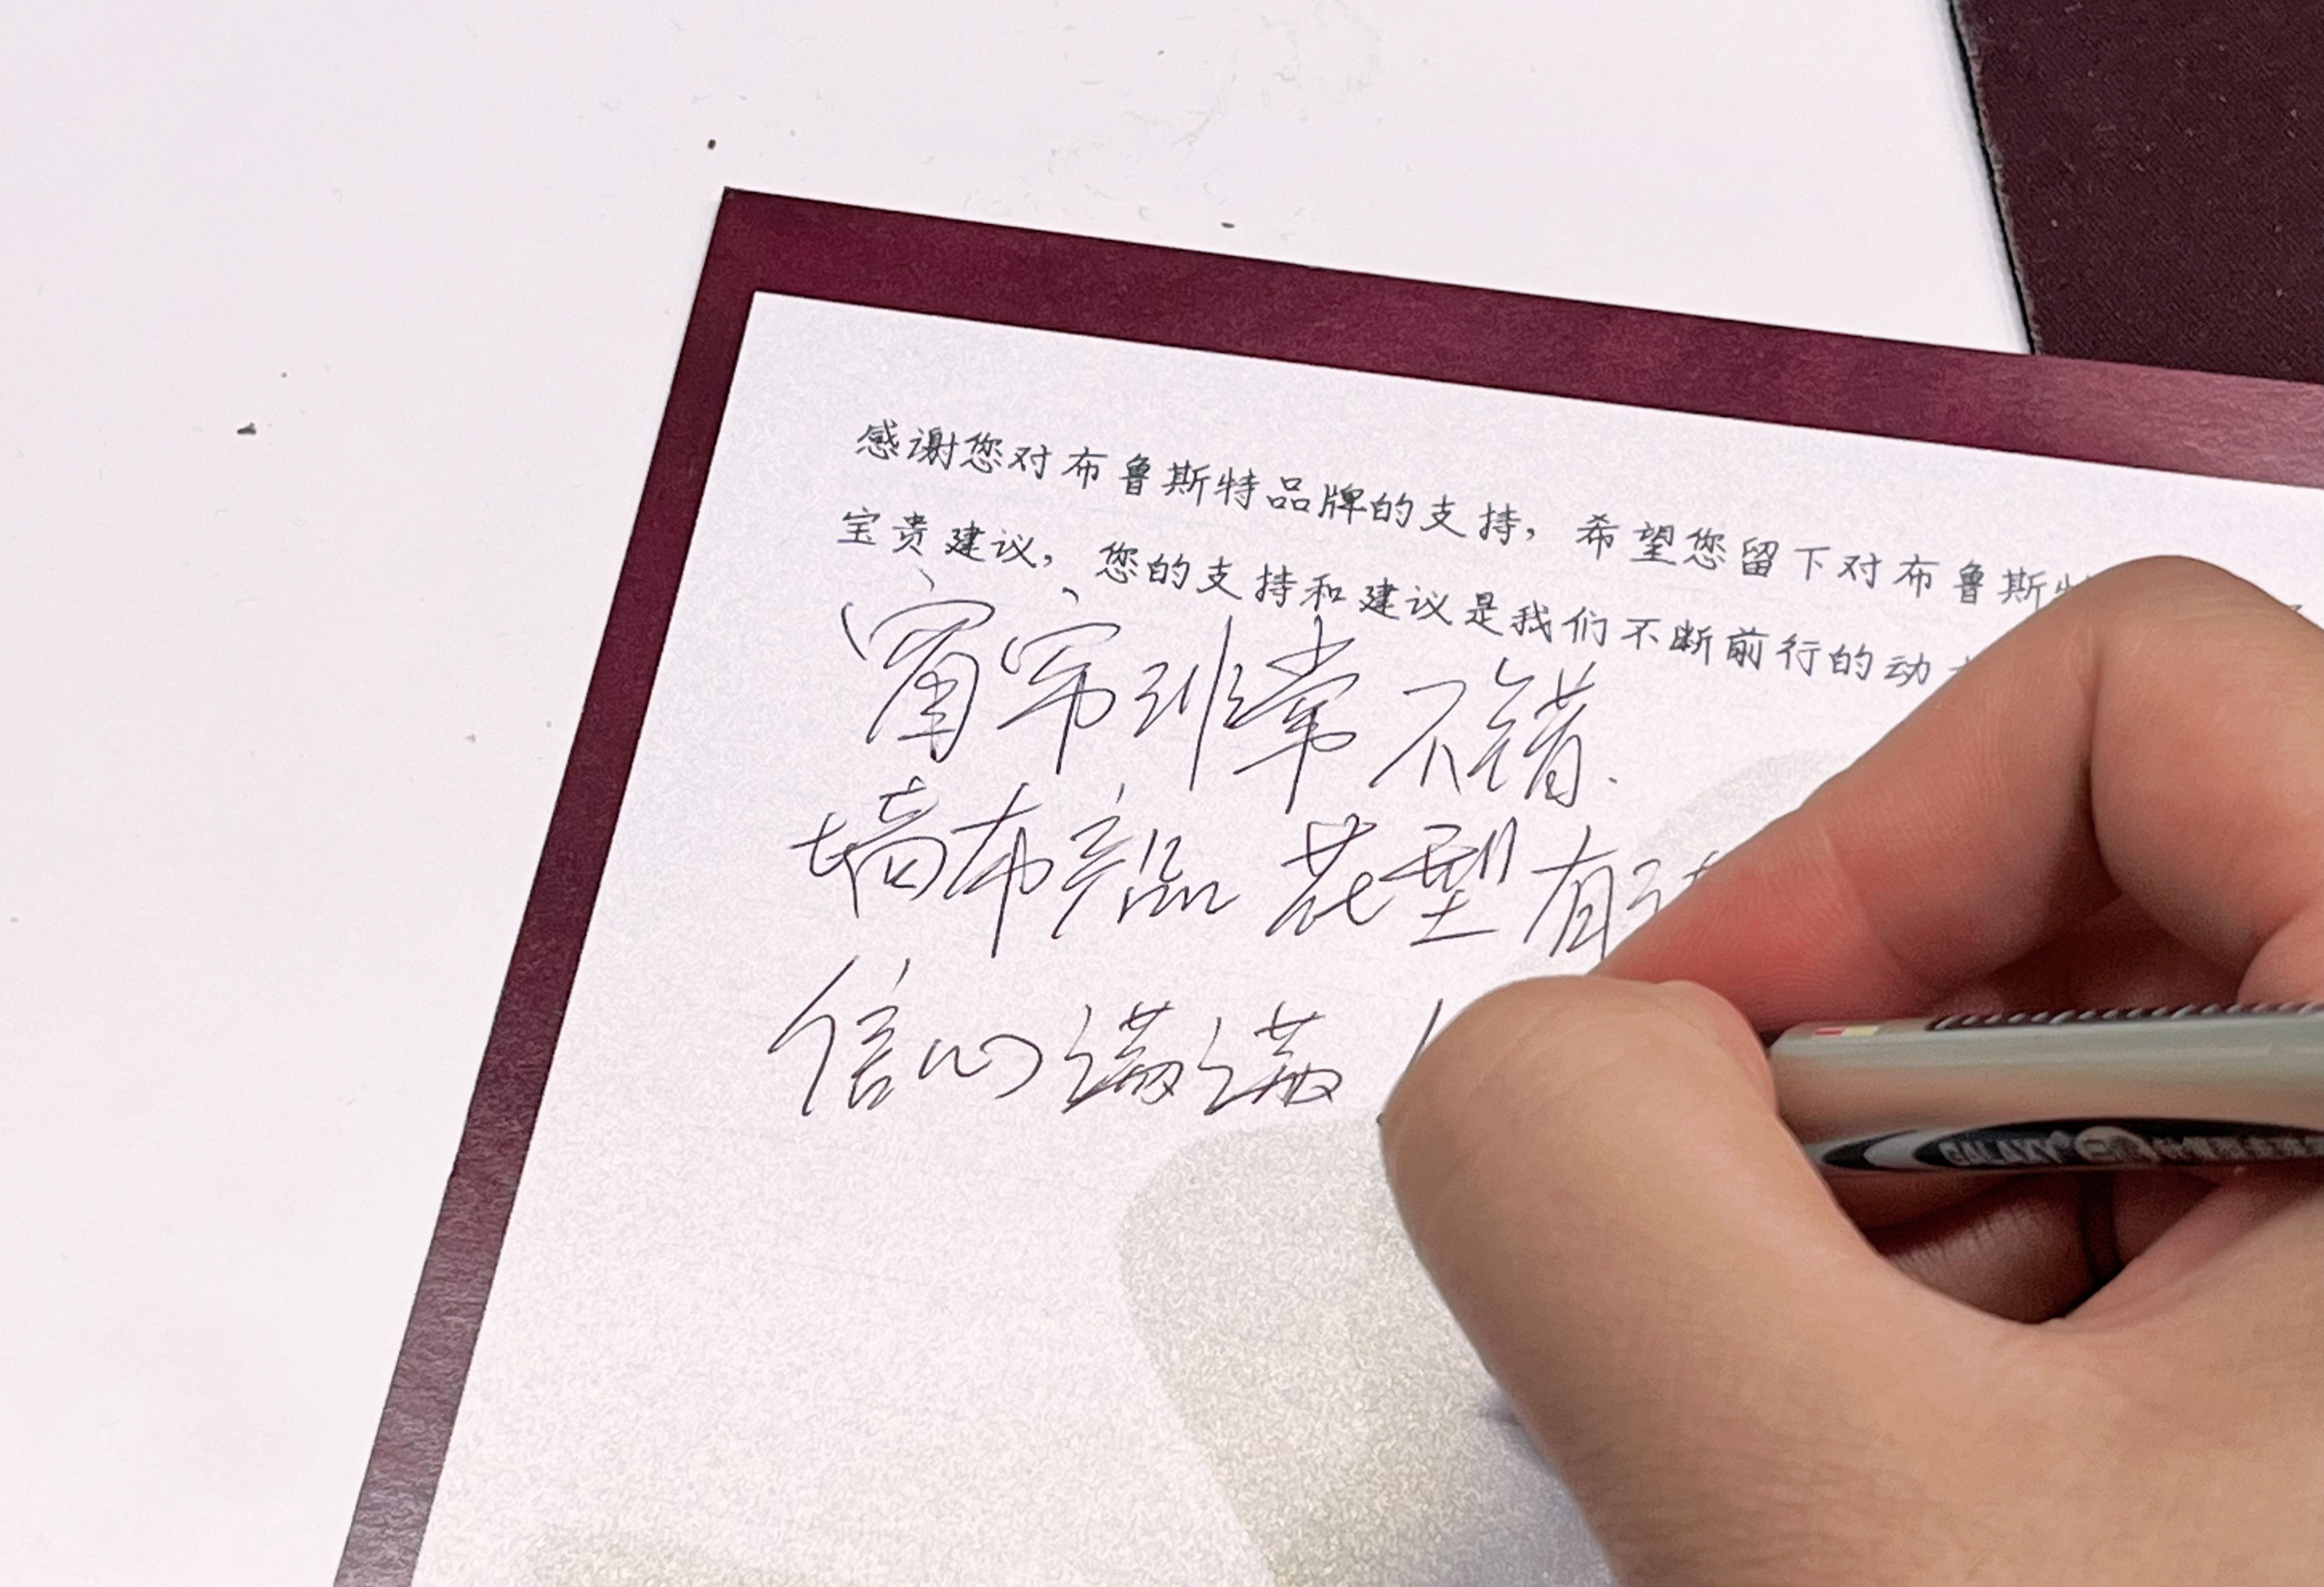 感谢您对布鲁斯特品牌的支持，希望您留下对布鲁斯
宝贵建议，您的支持和建议是我们不断前行的动
窗帘非常不错.
墙布产品 花型有
信心满满
GALAXY